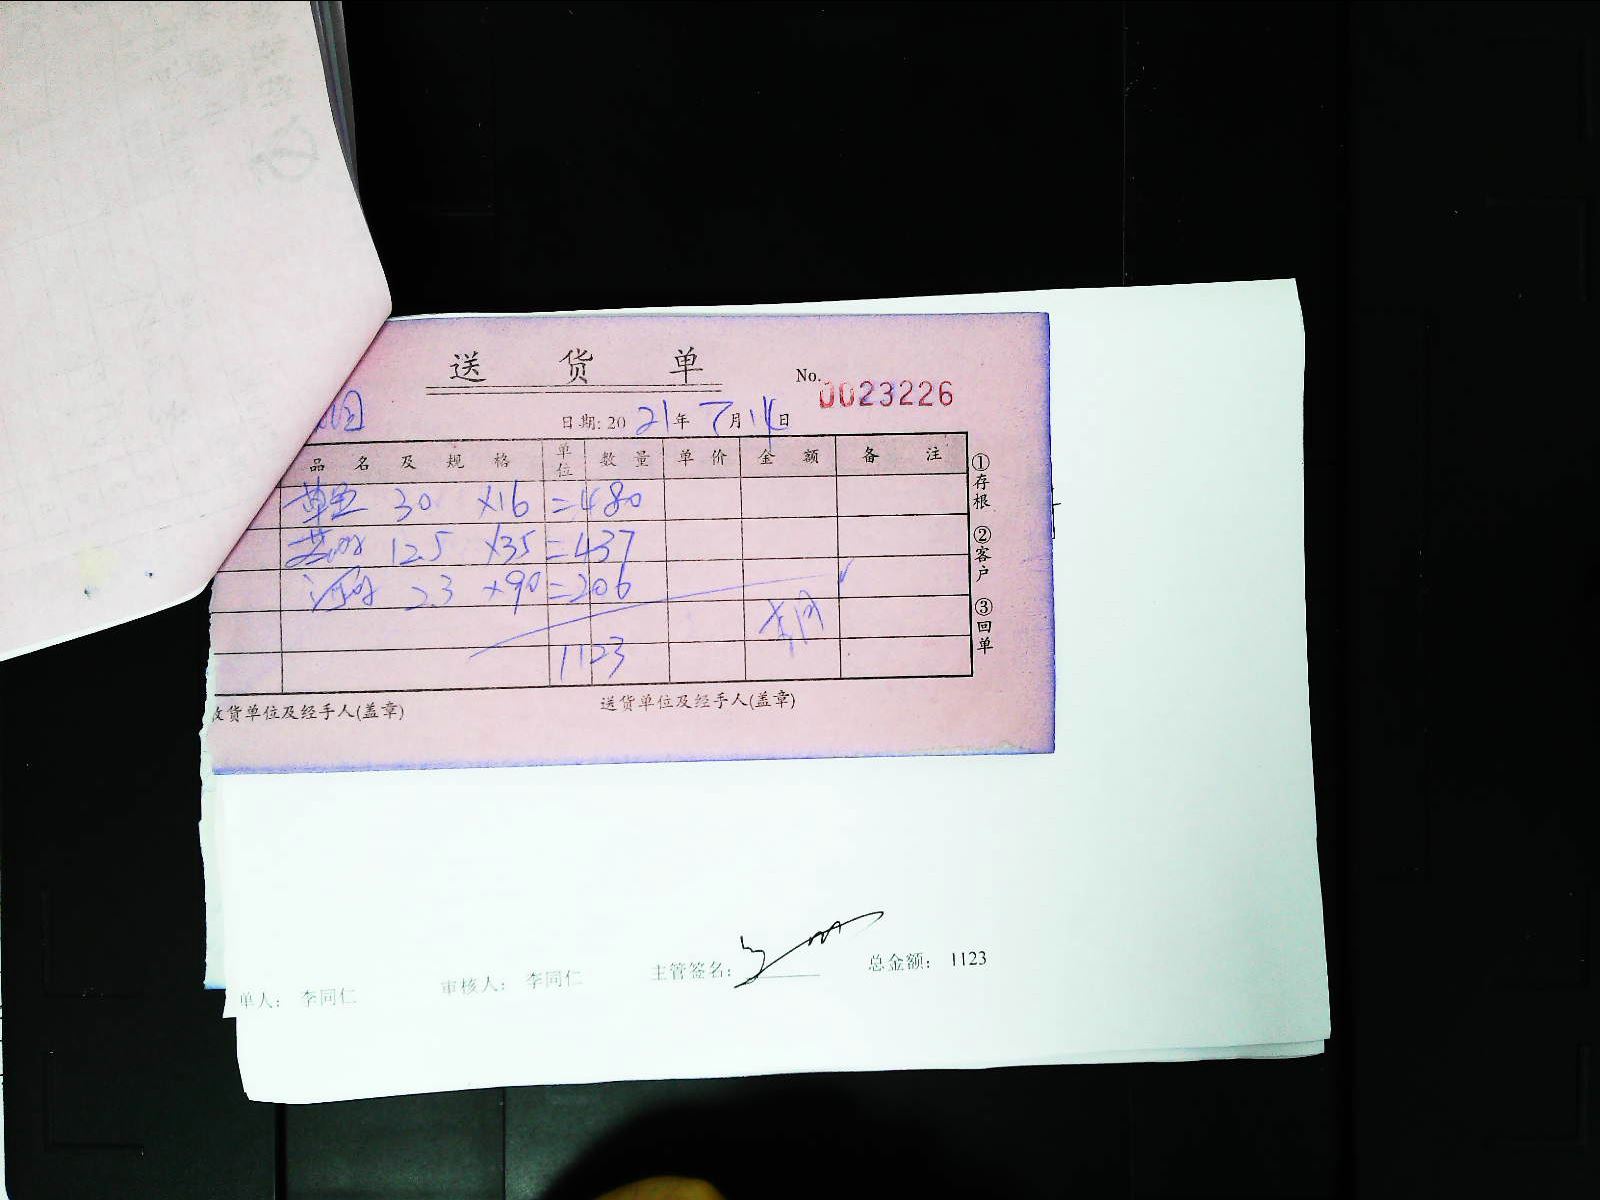 送 货 单
No. 0023226
日期: 20 21 年 7 月 14 日
品 名 及 规 格 单位 数 量 单 价 金 额 备 注
草鱼 30 ×16 =480
12.5 ×35 =437
河虾 2.3 ×90 =206
1123
①存根 ②客户 ③回单
收货单位及经手人(盖章) 送货单位及经手人(盖章)
单人： 李同仁 审核人： 李同仁 主管签名： 总金额： 1123